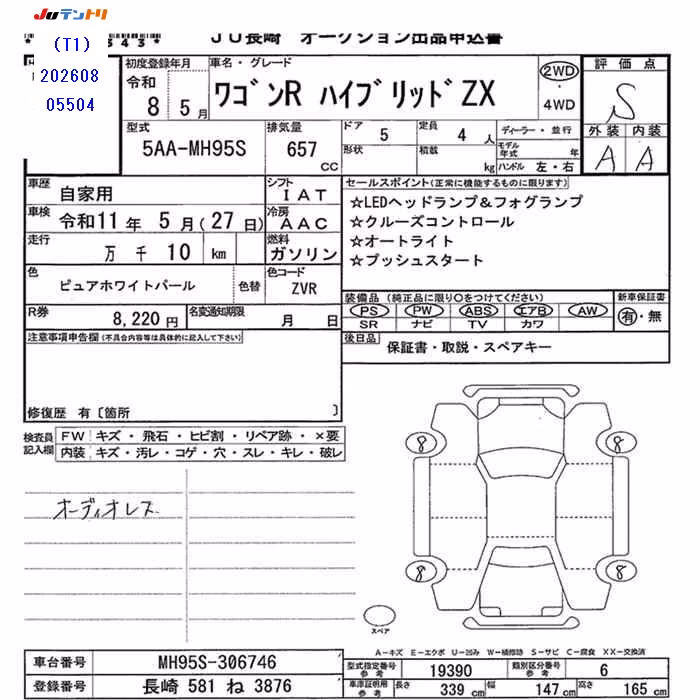 JUテントリ
(T1)
202608
05504
343*
JU長崎 オークション出品申込書
初度登録年月
令和
8 5月
車名・グレード
ワゴンR ハイブリッドZX
2WD
・
4WD
評価点
S
外装 内装
A A
型式
5AA-MH95S
排気量
657
CC
ドア
5
定員
4人
形状
積載
kg
ディーラー・並行
モデル年式 年
ハンドル 左・右
車歴
自家用
シフト
IAT
車検
令和11年 5月(27日)
冷房
AAC
走行
万 千 10 km
燃料
ガソリン
色
ピュアホワイトパール
色替
色コード
ZVR
R券
8,220円
名変通知期限
月 日
セールスポイント(正常に機能するものに限ります)
☆LEDヘッドランプ&フォグランプ
☆クルーズコントロール
☆オートライト
☆プッシュスタート
装備品(純正品に限り○をつけてください)
PS PW ABS エアB AW
SR ナビ TV カワ
新車保証書
有・無
後日品
保証書・取説・スペアキー
注意事項申告欄(不具合内容等は具体的に記入して下さい)
修復歴 有〔箇所 〕
検査員記入欄
FW キズ・飛石・ヒビ割・リペア跡・×要
内装 キズ・汚レ・コゲ・穴・スレ・キレ・破レ
オーディオレス
8 8
8 8
スペア
A-キズ E-エクボ U-凹み W-補修跡 S-サビ C-腐食 XX-交換済
車台番号
MH95S-306746
登録番号
長崎 581 ね 3876
型式指定番号
参考
19390
類別区分番号
参考
6
車庫証明用
参考
長さ 339 cm 幅 147 cm 高さ 165 cm